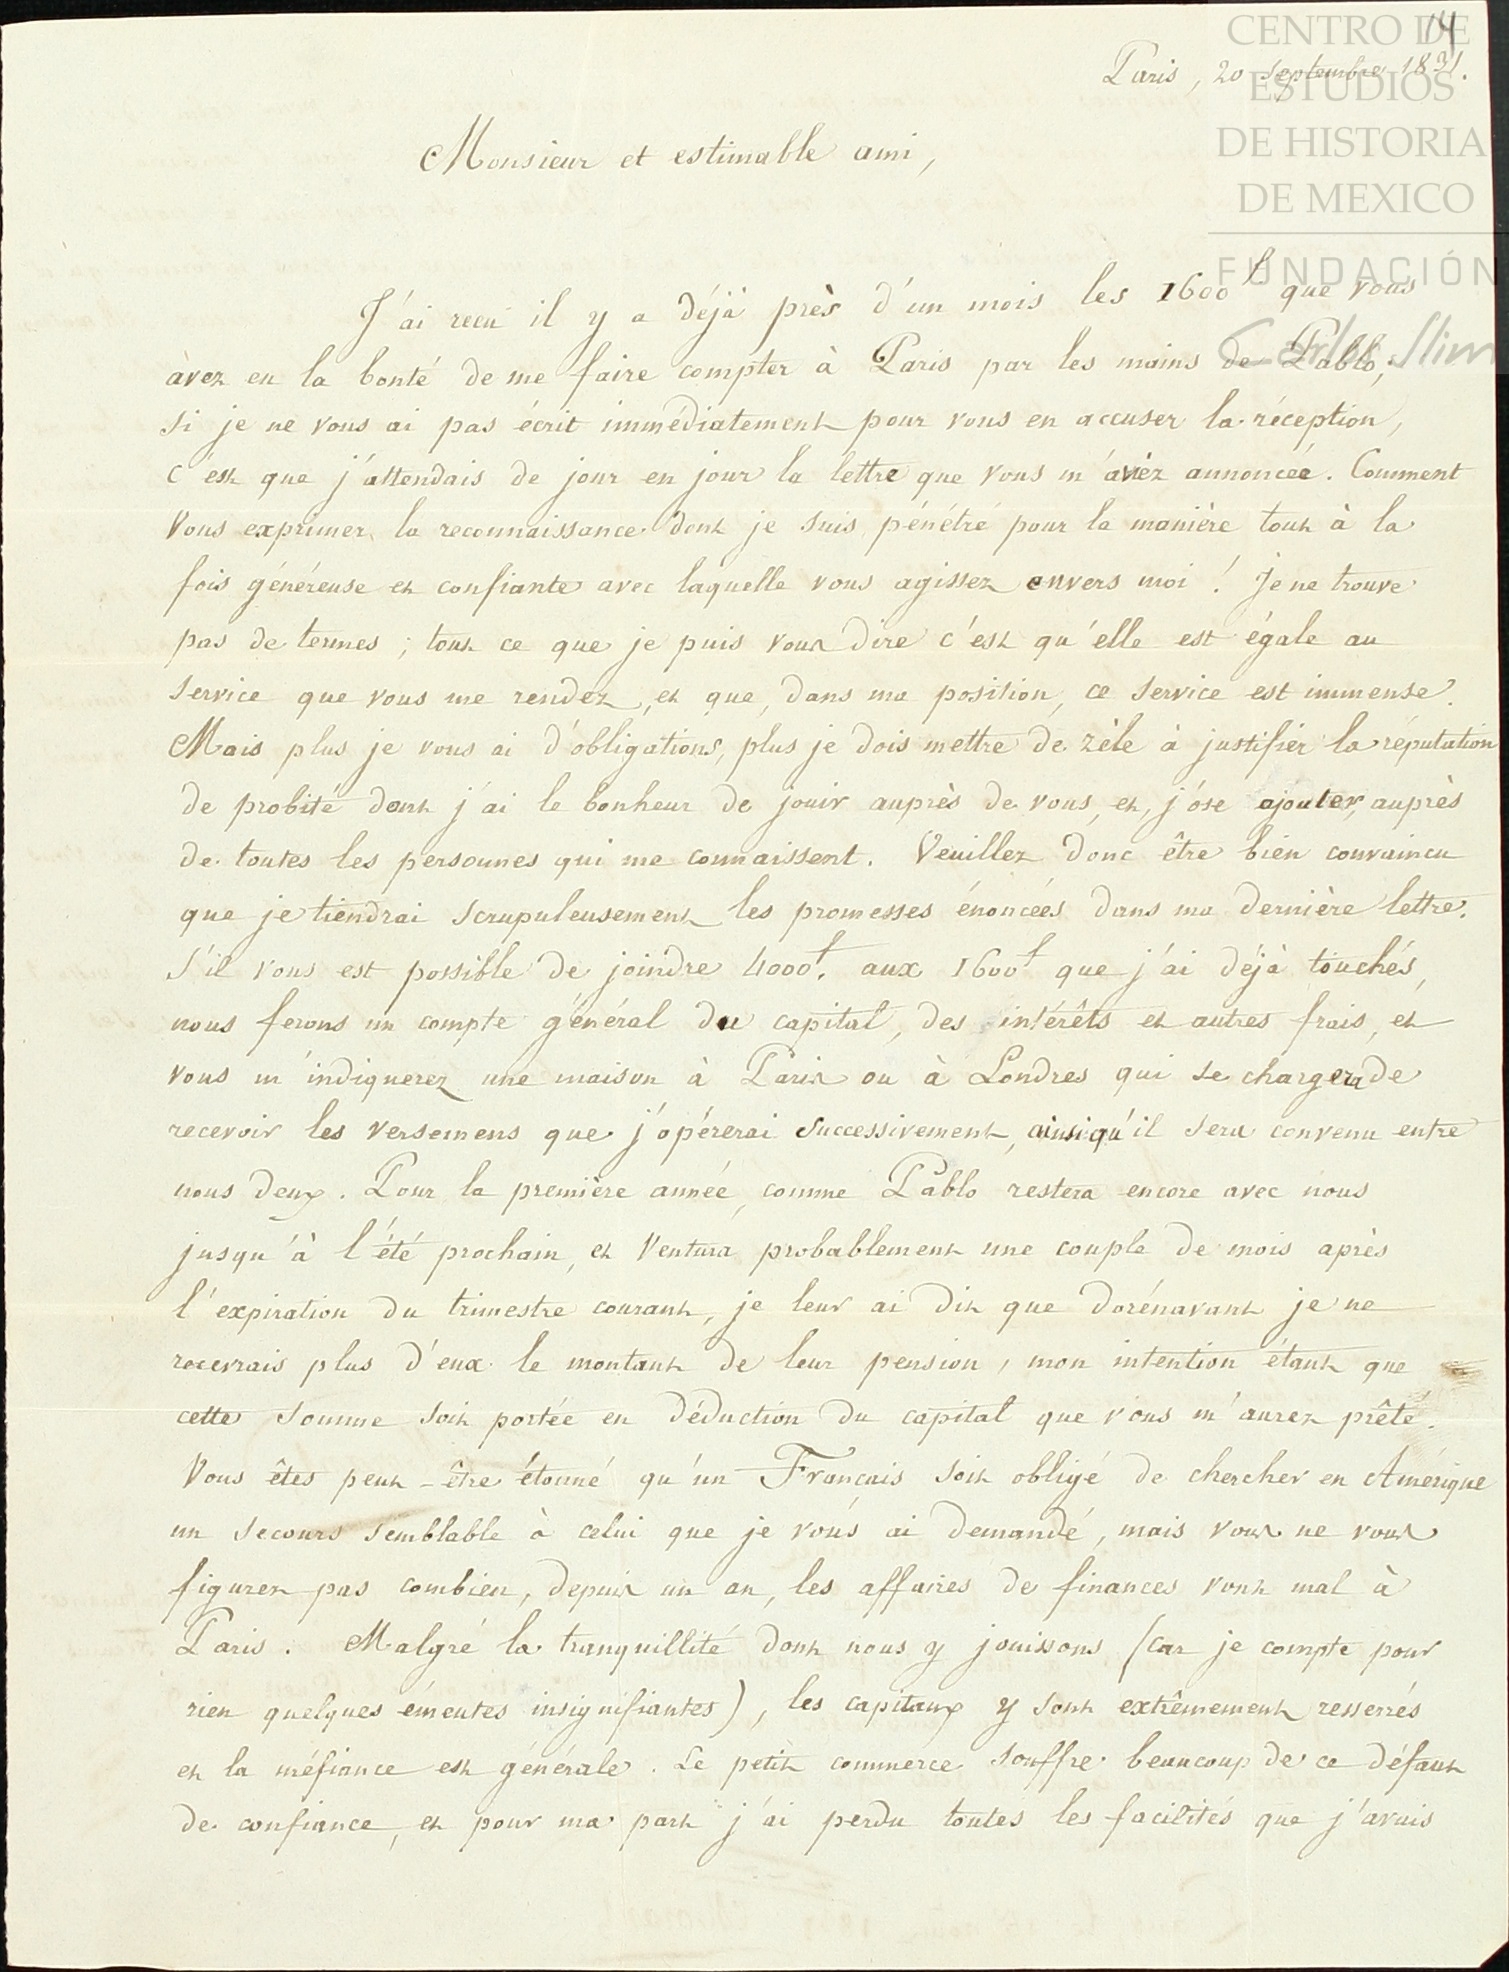 14
Paris, 20 Septembre 1831.
Monsieur et estimable ami,
J'ai reçu il y a déjà près d'un mois les 1600 f que vous
avez eu la bonté de me faire compter à Paris par les mains de Pablo;
si je ne vous ai pas écrit immédiatement pour vous en accuser la réception,
c'est que j'attendais de jour en jour la lettre que vous m'aviez annoncée. Comment
vous exprimer la reconnaissance dont je suis pénétré pour la manière tout à la
fois généreuse et confiante avec laquelle vous agissez envers moi! Je ne trouve
pas de termes; tout ce que je puis vous dire c'est qu'elle est égale au
service que vous me rendez, et que, dans ma position, ce service est immense.
Mais plus je vous ai d'obligations, plus je dois mettre de zèle à justifier la réputation
de probité dont j'ai le bonheur de jouir auprès de vous, et, j'ose ajouter, auprès
de toutes les personnes qui me connaissent. Veuillez donc être bien convaincu
que je tiendrai scrupuleusement les promesses énoncées dans ma dernière lettre.
S'il vous est possible de joindre 4000 f. aux 1600 f que j'ai déjà touchés,
nous ferons un compte général du capital, des intérêts et autres frais, et
vous m'indiquerez une maison à Paris ou à Londres qui se chargera de
recevoir les versemens que j'opérerai successivement, ainsi qu'il sera convenu entre
nous deux. Pour la première année, comme Pablo restera encore avec nous
jusqu'à l'été prochain, et Ventura probablement une couple de mois après
l'expiration du trimestre courant, je leur ai dit que dorénavant je ne
recevrais plus d'eux le montant de leur pension, mon intention étant que
cette somme soit portée en déduction du capital que vous m'aurez prêté.
Vous êtes peut-être étonné qu'un Français soit obligé de chercher en Amérique
un secours semblable à celui que je vous ai demandé, mais vous ne vous
figurez pas combien, depuis un an, les affaires de finances vont mal à
Paris. Malgré la tranquillité dont nous y jouissons (car je compte pour
rien quelques émeutes insignifiantes), les capitaux y sont extrêmement resserrés
et la méfiance est générale. Le petit commerce souffre beaucoup de ce défaut
de confiance, et pour ma part j'ai perdu toutes les facilités que j'avais
CENTRO DE
ESTUDIOS
DE HISTORIA
DE MEXICO
FUNDACIÓN
Carlos Slim